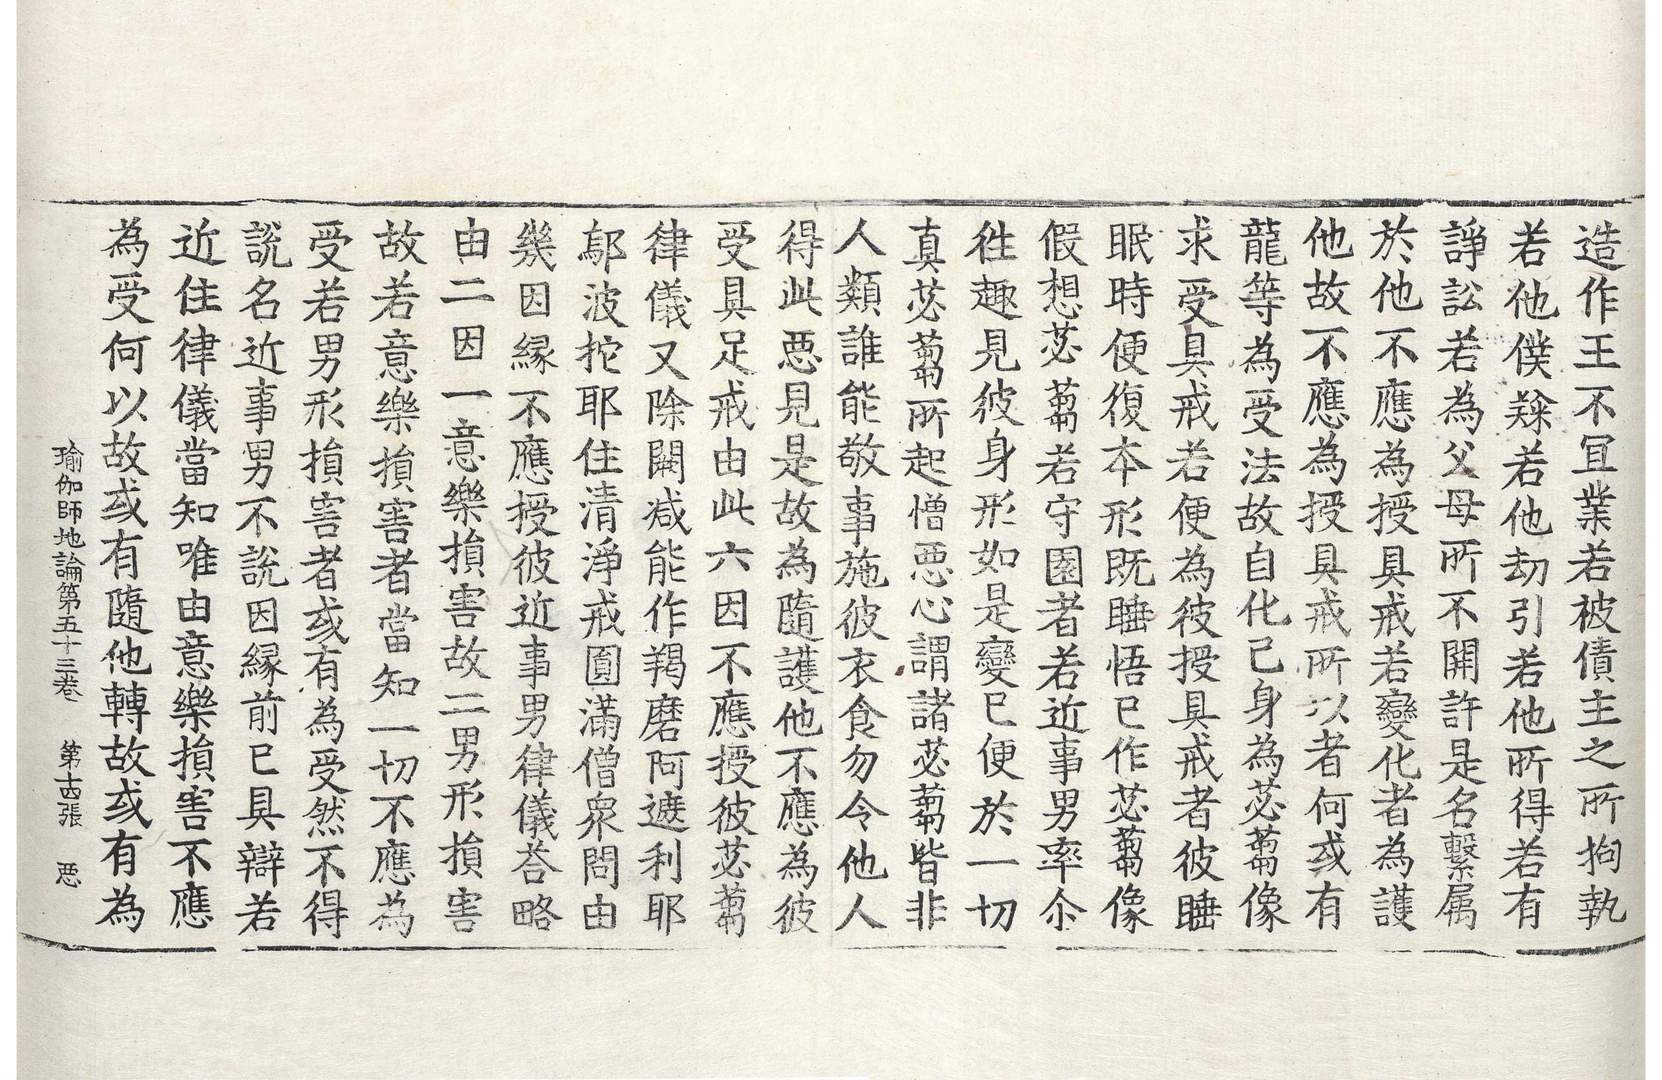 造作王不宜業若被債主之所拘執
若他僕隸若他劫引若他所得若有
諍訟若為父母所不開許是名繫屬
於他不應為授具戒若變化者為護
他故不應為授具戒所以者何或有
龍等為受法故自化己身為苾蒭像
求受具戒若便為彼授具戒者彼睡
眠時便復本形既睡悟已作苾蒭像
假想苾蒭若守園者若近事男率尒
往趣見彼身形如是變已便於一切
真苾蒭所起憎惡心謂諸苾蒭皆非
人類誰能敬事施彼衣食勿令他人
得此惡見是故為隨護他不應為彼
受具足戒由此六因不應授彼苾蒭
律儀又除闕減能作羯磨阿遮利耶
鄔波拕耶住清淨戒圓滿僧衆問由
幾因緣不應授彼近事男律儀荅略
由二因一意樂損害故二男形損害
故若意樂損害者當知一切不應為
受若男形損害者或有為受然不得
說名近事男不說因緣前已具辯若
近住律儀當知唯由意樂損害不應
為受何以故或有隨他轉故或有為
瑜伽師地論第五十三卷　第十四張　惡